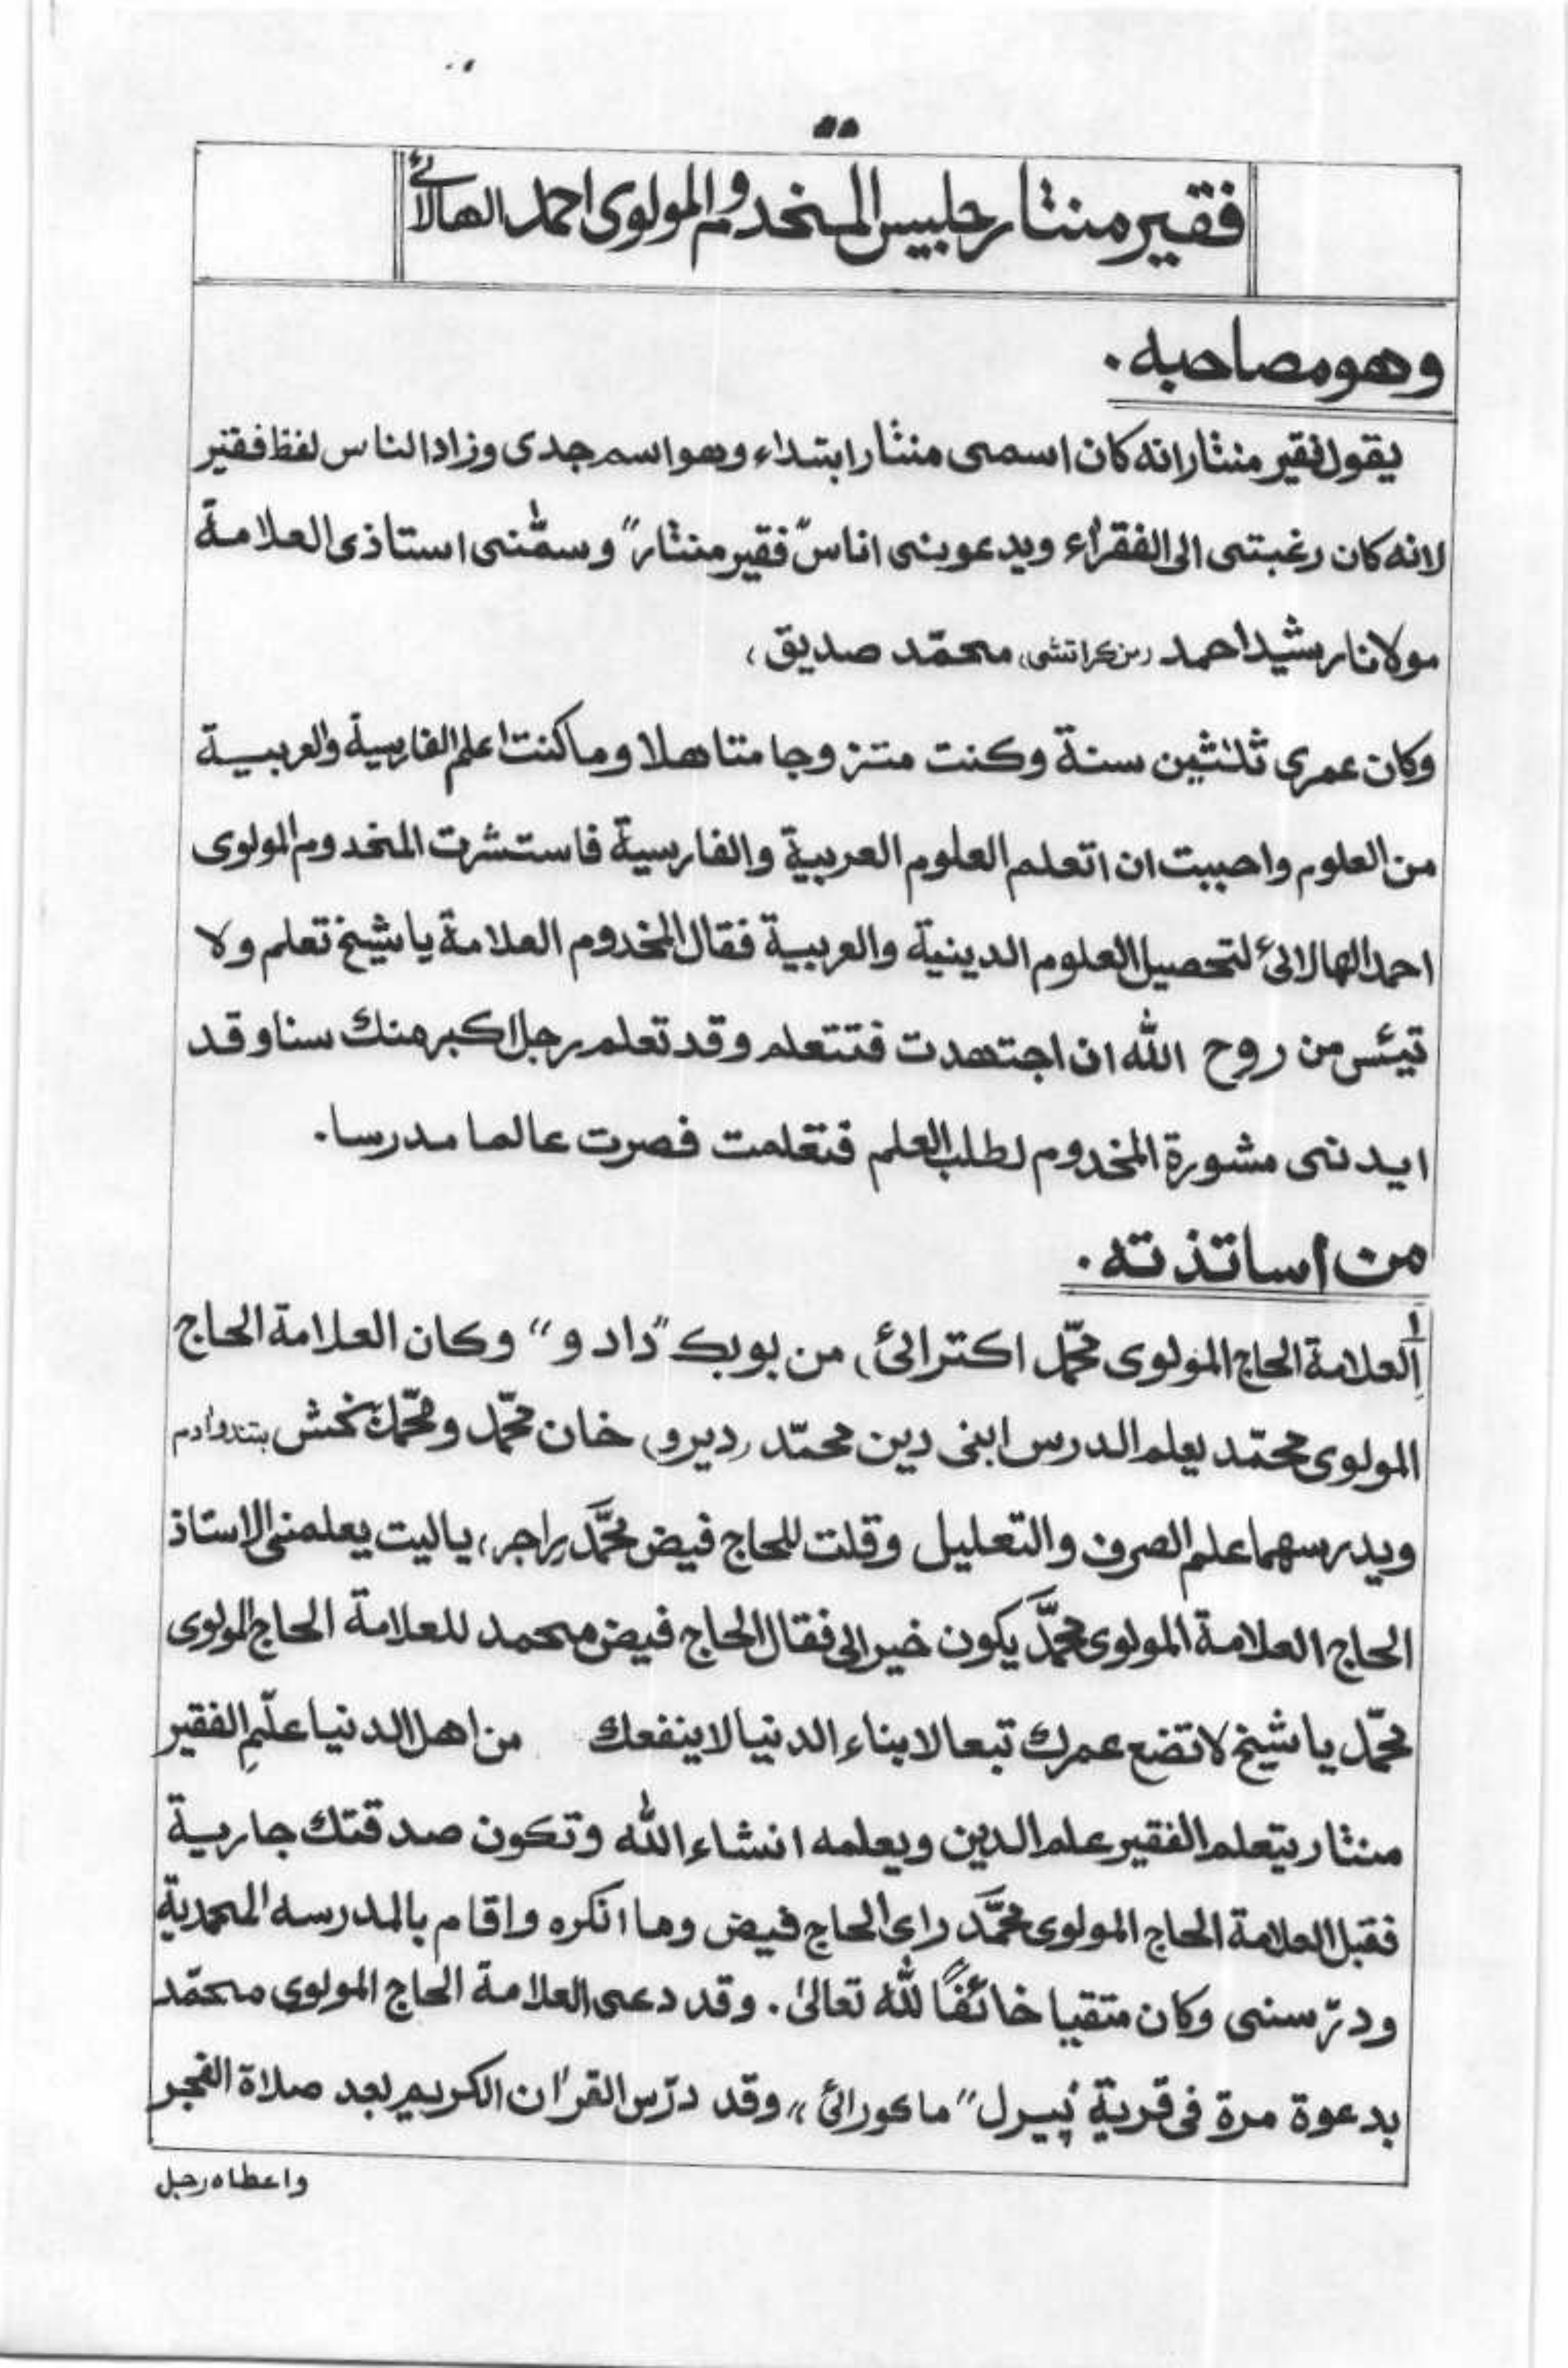 ٥٥
فقير منثار جليس المخدوم المولوى احمد الهالائى
وهو مصاحبه .
يقول فقير منثار انه كان اسمى منثار ابتداء وهو اسم جدى وزاد الناس لفظ فقير
لانه كان رغبتى الى الفقراء ويدعوننى اناس فقير منثار" وسمّٰنى استاذى العلامة
مولانا رشيد احمد (من كراتشى) محمّد صديق ،
وكان عمرى ثلٰثين سنة وكنت متزوجا متاهلا وما كنت اعلم الفارسية والعربية
من العلوم واحببت ان اتعلم العلوم العربية والفارسية فاستشرت المخدوم المولوى
احمد الهالائى لتحصيل العلوم الدينية والعربية فقال المخدوم العلامة يا شيخ تعلم ولا
تيئس من روح الله ان اجتهدت فتتعلم وقد تعلم رجل اكبر منك سنا وقد
ايدنى مشورة المخدوم لطلب العلم فتعلمت فصرت عالما مدرسا .
من اساتذته .
١ العلامة الحاج المولوى محمّد اكترائى، من بوبك "دادو" وكان العلامة الحاج
المولوى محمّد يعلم الدرس ابنى دين محمّد (ديرو) خان محمّد ومحمّد بخش بتندوادم
ويدرسهما علم الصرف والتعليل وقلت للحاج فيض محمَّد راجر، ياليت يعلمنى الاستاذ
الحاج العلامة المولوى محمَّد يكون خيرا لى فقال الحاج فيض محمد للعلامة الحاج المولوى
محمّد يا شيخ لا تضع عمرك تبعا لابناء الدنيا لا ينفعك من اهل الدنيا علّمِ الفقير
منثار يتعلم الفقير علم الدين ويعلمه انشاء الله وتكون صدقتك جارية
فقبل العلامة الحاج المولوى محمَّد راى الحاج فيض وما انكره واقام بالمدرسه المحمدية
ودرّسنى وكان متقيا خائفًا لله تعالىٰ . وقد دعى العلامة الحاج المولوى محمّد
بدعوة مرة فى قرية پيرل "ماكورائى" وقد درّس القرٰان الكريم بعد صلاة الفجر
واعطاه رجل